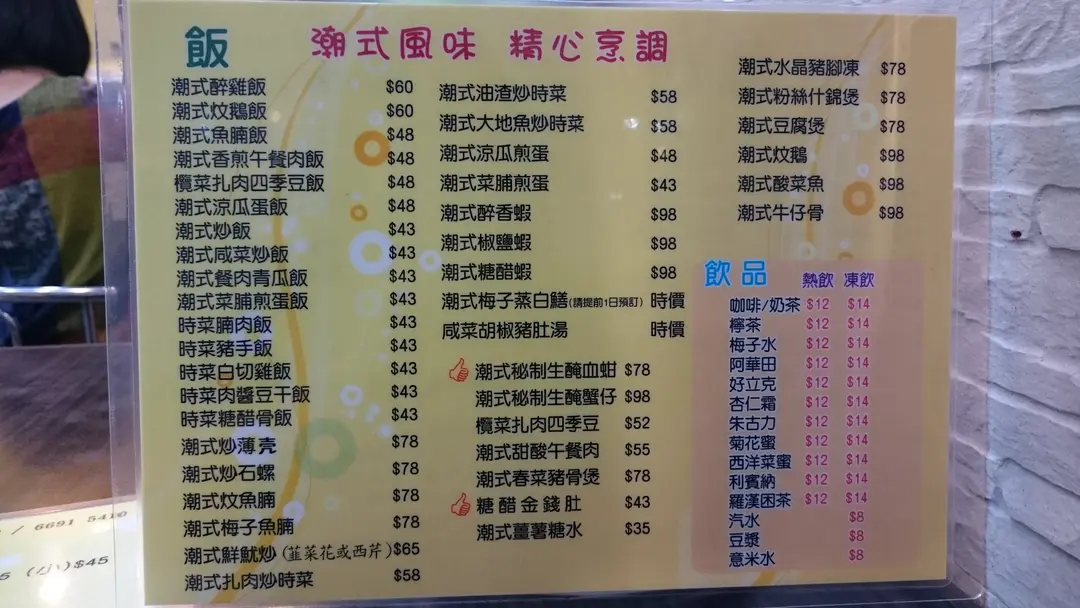 飯
潮式風味 精心烹調
潮式醉雞飯 $60
潮式炆鵝飯 $60
潮式魚腩飯 $48
潮式香煎午餐肉飯 $48
欖菜扎肉四季豆飯 $48
潮式涼瓜蛋飯 $48
潮式炒飯 $43
潮式咸菜炒飯 $43
潮式餐肉青瓜飯 $43
潮式菜脯煎蛋飯 $43
時菜腩肉飯 $43
時菜豬手飯 $43
時菜白切雞飯 $43
時菜肉醬豆干飯 $43
時菜糖醋骨飯 $43
潮式炒薄壳 $78
潮式炒石螺 $78
潮式炆魚腩 $78
潮式梅子魚腩 $78
潮式鮮魷炒(韮菜花或西芹) $65
潮式扎肉炒時菜 $58
潮式油渣炒時菜 $58
潮式大地魚炒時菜 $58
潮式涼瓜煎蛋 $48
潮式菜脯煎蛋 $43
潮式醉香蝦 $98
潮式椒鹽蝦 $98
潮式糖醋蝦 $98
潮式梅子蒸白鱔(請提前1日預訂) 時價
咸菜胡椒豬肚湯 時價
潮式秘制生醃血蚶 $78
潮式秘制生醃蟹仔 $98
欖菜扎肉四季豆 $52
潮式甜酸午餐肉 $55
潮式春菜豬骨煲 $78
糖醋金錢肚 $43
潮式薑薯糖水 $35
潮式水晶豬腳凍 $78
潮式粉絲什錦煲 $78
潮式豆腐煲 $78
潮式炆鵝 $98
潮式酸菜魚 $98
潮式牛仔骨 $98
飲品 熱飲 凍飲
咖啡/奶茶 $12 $14
檸茶 $12 $14
梅子水 $12 $14
阿華田 $12 $14
好立克 $12 $14
杏仁霜 $12 $14
朱古力 $12 $14
菊花蜜 $12 $14
西洋菜蜜 $12 $14
利賓納 $12 $14
羅漢困茶 $12 $14
汽水 $8
豆漿 $8
意米水 $8
/ 6691 5410
5 (小)$45